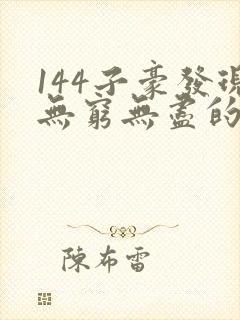 144子豪發現
無窮無盡的
陳布雷